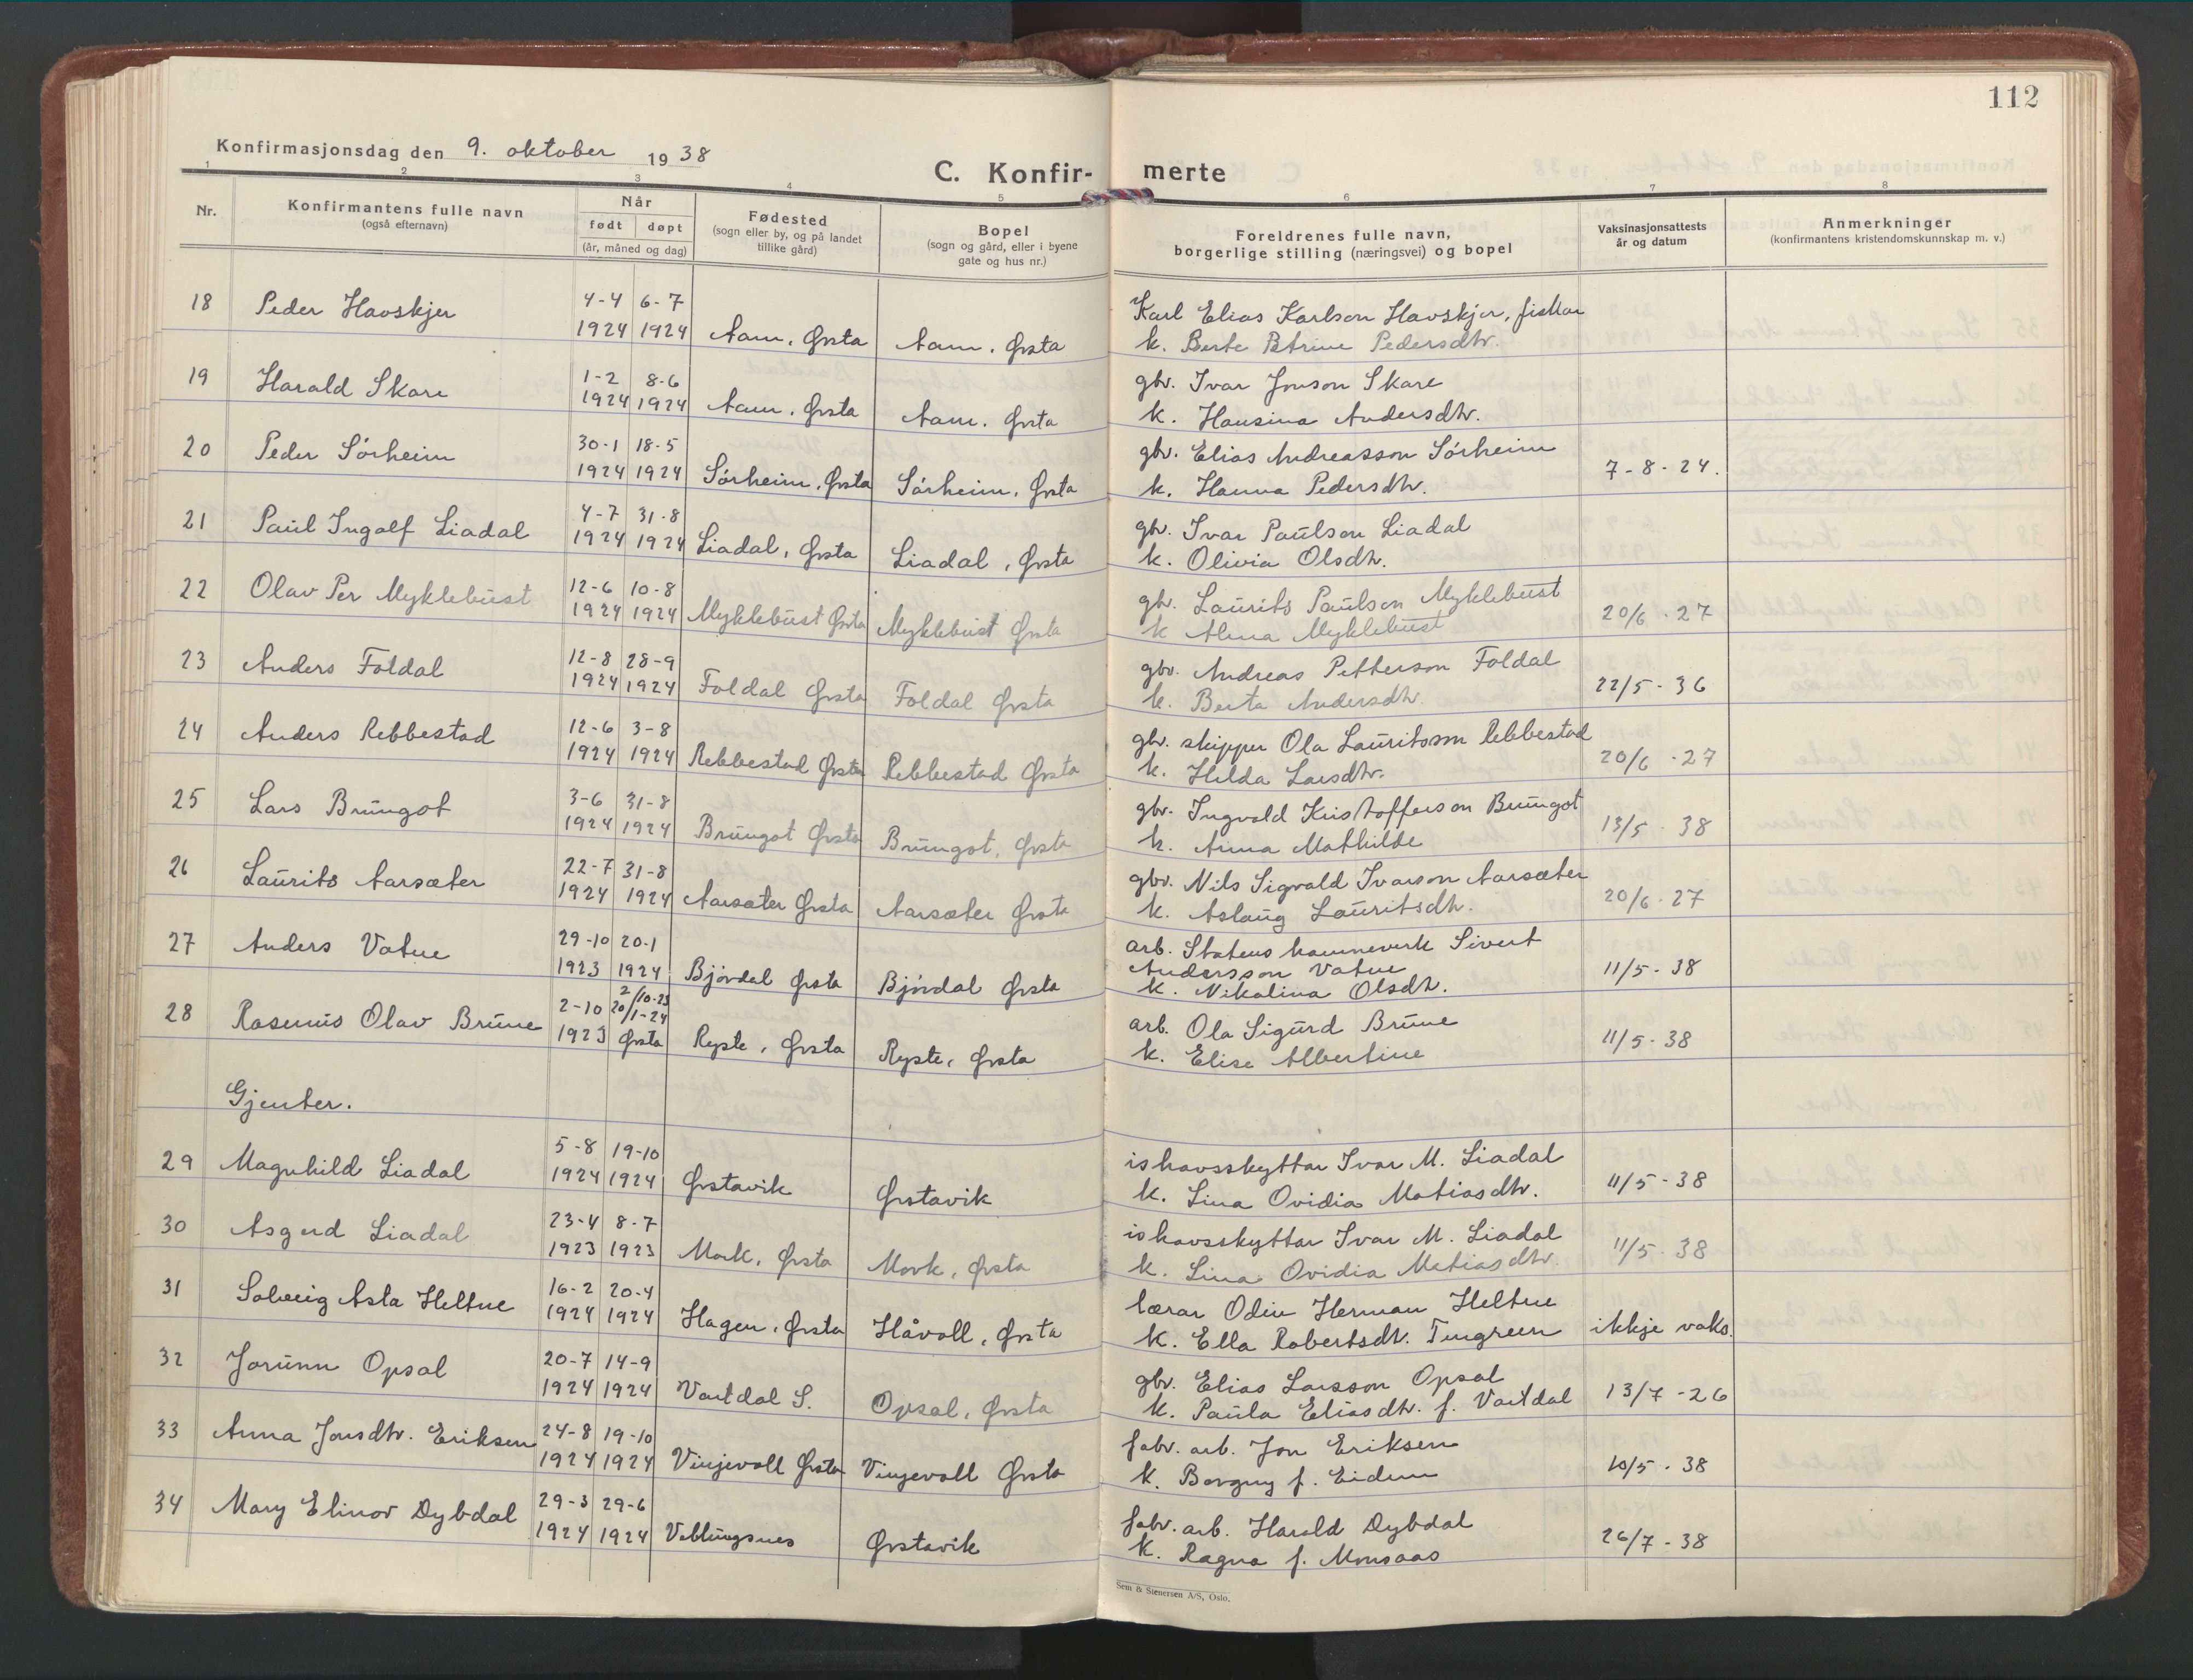 112
Konfirmasjonsdag den 9. oktober 1938
C. Konfir- merte
1 2 3 4 5 6 7 8
Nr.
Konfirmantens fulle navn
(også efternavn)
Når
født døpt
(år, måned og dag)
Fødested
(sogn eller by, og på landet
tillike gård)
Bopel
(sogn og gård, eller i byene
gate og hus nr.)
Foreldrenes fulle navn,
borgerlige stilling (næringsvei) og bopel
Vaksinasjonsattests
år og datum
Anmerkninger
(konfirmantens kristendomskunnskap m. v.)
18 Peder Havskjer 4-4 6-7 Karl Elias Karlson Havskjer, fiskar
1924 1924 Aam, Ørsta Aam, Ørsta k. Berte Petrine Pedersdtr.
19 Harald Skare 1-2 8-6 gbr. Ivar Jonson Skare
1924 1924 Aam, Ørsta Aam, Ørsta k. Hansina Andersdtr.
20 Peder Sörheim 30-1 18-5 gbr. Elias Andreasson Sörheim
1924 1924 Sörheim, Ørsta Sörheim, Ørsta k. Hanna Pedersdtr. 7-8-24.
21 Paul Ingolf Liadal 4-7 31-8 gbr. Ivar Paulson Liadal
1924 1924 Liadal, Ørsta Liadal, Ørsta k. Olivia Olsdtr.
22 Olav Per Myklebust 12-6 10-8 gbr. Laurits Paulson Myklebust
1924 1924 Myklebust Ørsta Myklebust Ørsta k Alma Myklebust 20/6-27
23 Anders Foldal 12-8 28-9 gbr. Andreas Petterson Foldal
1924 1924 Foldal Ørsta Foldal Ørsta k. Berta Andersdtr. 22/5-36
24 Anders Rebbestad 12-6 3-8 gbr. skipper Ola Lauritsson Rebbestad
1924 1924 Rebbestad Ørsta Rebbestad Ørsta k. Hilda Larsdtr. 20/6-27
25 Lars Brungot 3-6 31-8 gbr. Ingvald Kristofferson Brungot
1924 1924 Brungot Ørsta Brungot, Ørsta k. Anna Mathilde 13/5-38
26 Laurits Aarsæter 22-7 31-8 gbr. Nils Sigvald Ivarson Aarsæter
1924 1924 Aarsæter Ørsta Aarsæter Ørsta k. Aslaug Lauritsdtr. 20/6-27
27 Anders Vatne 29-10 20-1 arb. Statens havneverk Sivert
Andersson Vatne
1923 1924 Björdal Ørsta Björdal Ørsta k. Nikolina Olsdtr. 11/5-38
28 Rasmus Olav Brune 2-10 2/10-23 20/1-24 arb. Ola Sigurd Brune
1923 Ørsta Ryste, Ørsta Ryste, Ørsta k. Elise Albertine 11/5-38
Gjenter.
29 Magnhild Liadal 5-8 19-10 ishavsskyttar Ivar M. Liadal
1924 1924 Ørstavik Ørstavik k. Lina Ovidia Matiasdtr. 11/5-38
30 Asgerd Liadal 23-4 8-7 ishavsskyttar Ivar M. Liadal
1923 1923 Mork, Ørsta Mork, Ørsta k. Lina Ovidia Matiasdtr. 11/5-38
31 Solveig Asta Heltne 16-2 20-4 lærar Odin Herman Heltne
1924 1924 Hagen, Ørsta Håvoll, Ørsta k. Ella Robertsdtr. Tengreen ikkje vaks.
32 Jorunn Opsal 20-7 14-9 gbr. Elias Larsson Opsal
1924 1924 Vartdal S. Opsal, Ørsta k. Paula Eliasdtr. f. Vartdal 13/7-26
33 Anna Jonsdtr. Eriksen 24-8 19-10 fabr. arb. Jon Eriksen
1924 1924 Vinjevoll Ørsta Vinjevoll Ørsta k. Borgny f. Eidem 10/5-38
34 Mary Elinor Dybdal 29-3 29-6 fabr. arb. Harald Dybdal
1924 1924 Veblungsnes Ørstavik k. Ragna f. Monsaas 26/7-38
Sem & Stenersen A/S, Oslo.